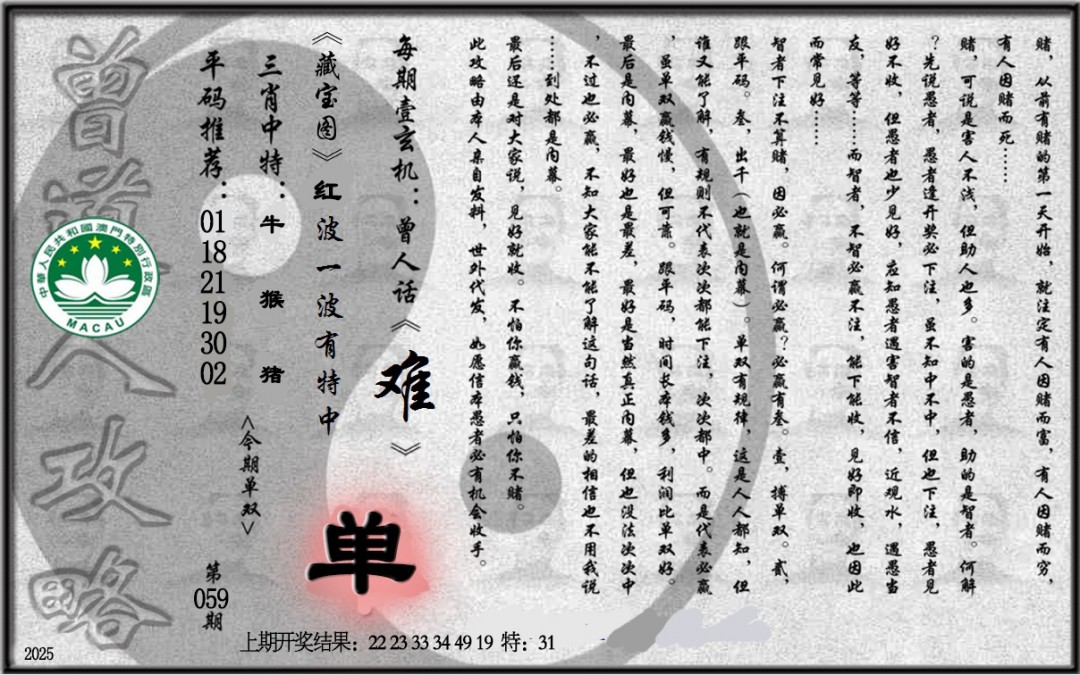 赌，从前有赌的第一天开始，就注定有人因赌而富，有人因赌而穷，
有人因赌而死……
赌，可说是害人不浅，但助人也多。害的是愚者，助的是智者。何解
？先说愚者，愚者逢开奖必下注，虽不知中不中，但也下注，愚者见
好不收，但愚者也少见好，应知愚者遇害智者不信，近观水，遇愚当
友，等等……而智者，不智必赢不注，能下能收，见好即收，也因此
而常见好……
智者下注不算赌，因必赢。何谓必赢？必赢有叁。壹，搏单双。贰，
跟平码。叁，出千（也就是内幕）。单双有规律，这是人人都知，但
谁又能了解，有规则不代表次次都能下注，次次都中。而是代表必赢
，虽单双赢钱慢，但可靠。跟平码，时间长本钱多，利润比单双好。
最后是内幕，最好也是最差，最好是当然真正内幕，但也没法次次中
，不过也必赢，不知大家能不能了解这句话，最差的相信也不用我说
……到处都是内幕。
最后还是对大家说，见好就收。不怕你赢钱，只怕你不赌。
此攻略由本人亲自发料，世外代发，如愿信本愚者必有机会收手。
每期壹玄机：曾人话《难》
《藏宝图》红波一波有特中
单
三肖中特：牛 猴 猪
<今期单双>
平码推荐：01 18 21 19 30 02
第059期
曾道人攻略
中華人民共和國澳門特別行政區
MACAU
上期开奖结果：22 23 33 34 49 19 特：31
2025